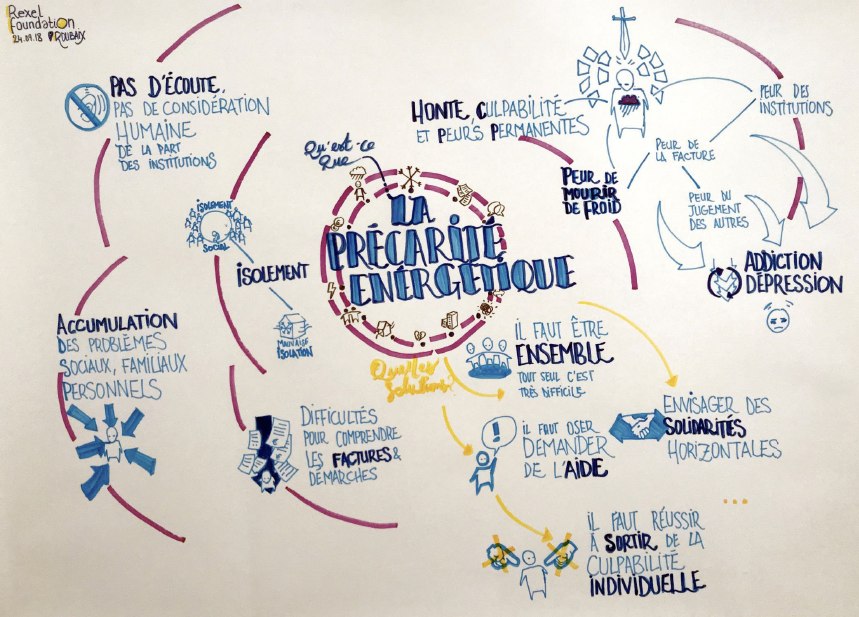 Rexel
Foundation
24.09.18 ROUBAIX
PAS D'ÉCOUTE,
PAS DE CONSIDÉRATION
HUMAINE
DE LA PART
DES INSTITUTIONS
ISOLEMENT
SOCIAL
ISOLEMENT
MAUVAISE
ISOLATION
ACCUMULATION
DES PROBLÈMES
SOCIAUX, FAMILIAUX
PERSONNELS
DIFFICULTÉS
POUR COMPRENDRE
LES FACTURES &
DÉMARCHES
Qu'est-ce
Que
LA
PRÉCARITÉ
ENÉRGÉTIQUE
HONTE, CULPABILITÉ
ET PEURS PERMANENTES
PEUR DES
INSTITUTIONS
PEUR DE
LA FACTURE
PEUR DU
JUGEMENT
DES AUTRES
PEUR DE
MOURIR
DE FROID
ADDICTION
DÉPRESSION
Quelles
Solutions?
IL FAUT ÊTRE
ENSEMBLE
TOUT SEUL C'EST
TRÈS DIFFICILE
!
IL FAUT OSER
DEMANDER
DE L'AIDE
ENVISAGER DES
SOLIDARITÉS
HORIZONTALES
...
IL FAUT RÉUSSIR
À SORTIR DE LA
CULPABILITÉ
INDIVIDUELLE